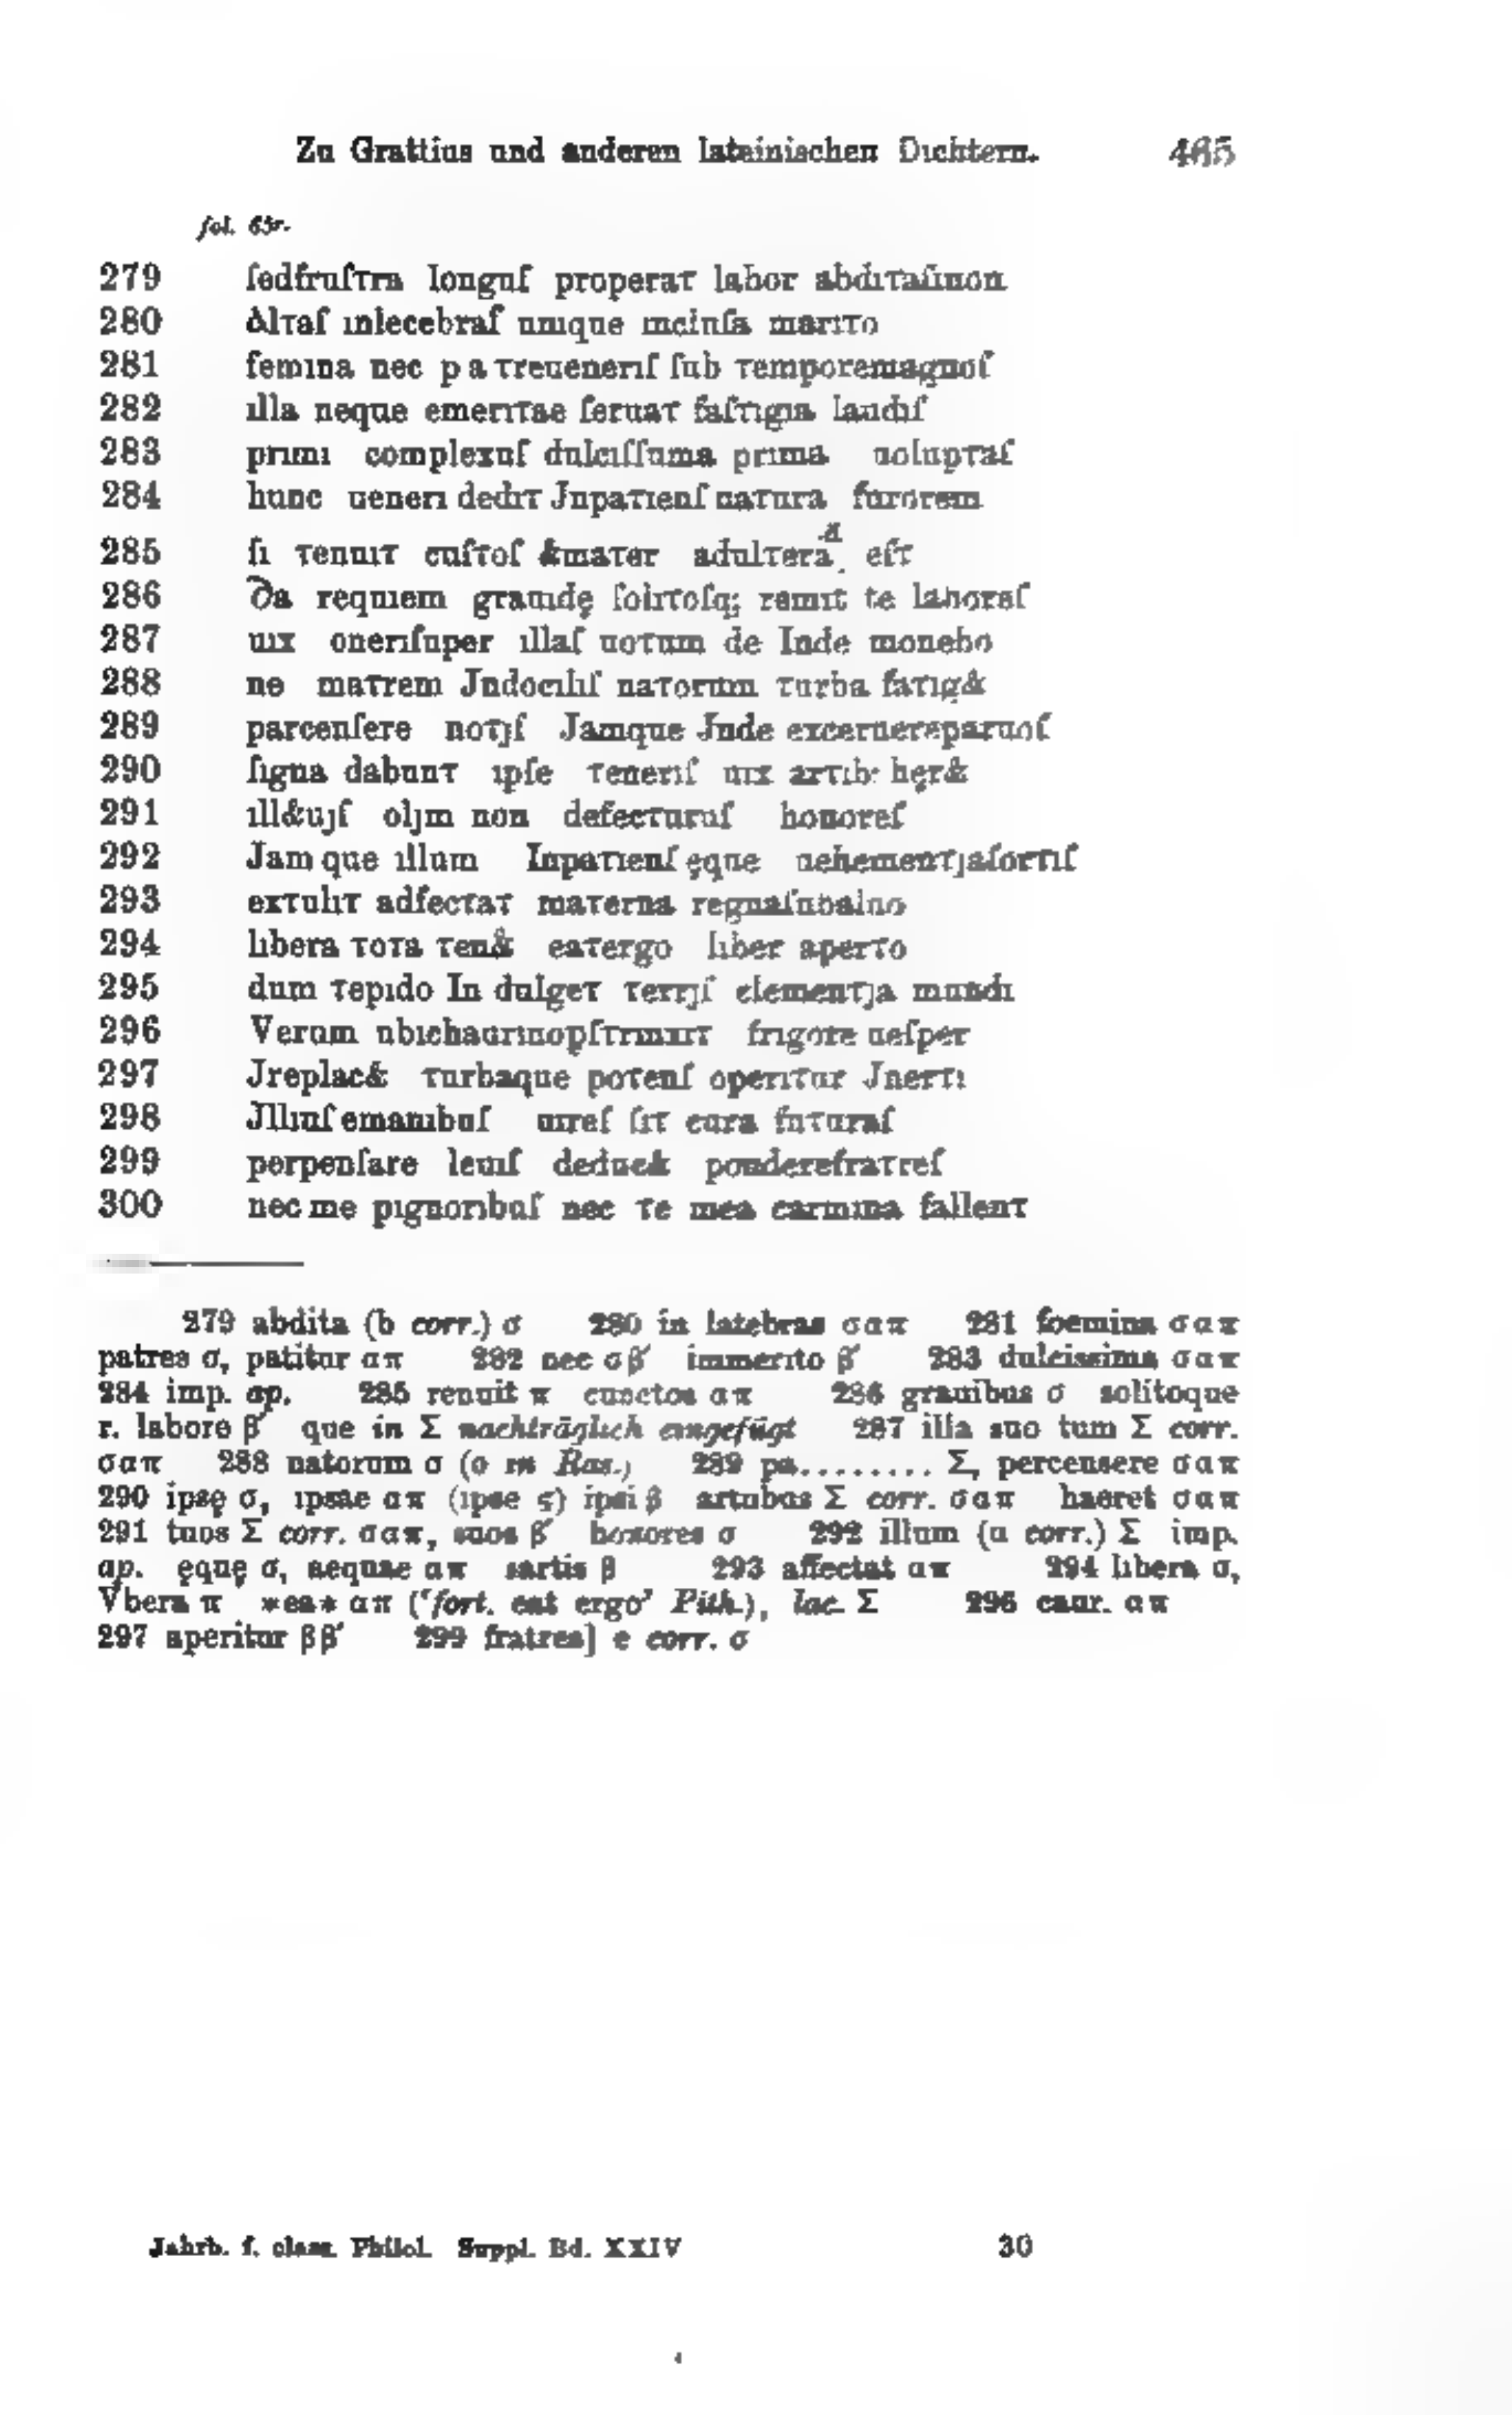 Zu Grattius und anderen lateinischen Dichtern. 465
fol. 65r.
279 ſedfruſtra longuſ properat labor abditaſinon
280 Altaſ inlecebraſ unique incinſa marito
281 femina nec p a treueneriſ ſub temporemagnoſ
282 illa neque emeritae ſeruat faſtigia laudiſ
283 primi complexuſ dulciſſuma prima uoluptaſ
284 hunc ueneri dedit Jnpatienſ natura furorem
285 ſi tenuit cuſtoſ &mater adultera, eſt
286 Da requiem grauidę ſolitoſq; remit te laboreſ
287 uix oneriſuper illaſ uotum de Inde monebo
288 ne matrem Jndociliſ natorum turba fatig&
289 parcenſere notjſ Jamque Jnde excernereparuoſ
290 ſigna dabunt ipſe teneriſ uix artib: hęr&
291 ill&ujſ oljm non defecturuſ honoreſ
292 Jam que illum Inpatienſ ęque uehementjaſortiſ
293 extulit adfectat materna regnaſubalno
294 libera tota ten& eatergo liber aperto
295 dum tepido In dulget terrjſ clementja mundi
296 Verum ubichaurinopſtrinxit frigore ueſper
297 Jreplac& turbaque potenſ operitur Jnerti
298 Jlliuſemanibuſ uireſ ſit cura futuraſ
299 perpenſare leuiſ deduc& ponderefratreſ
300 nec me pignoribuſ nec te mea carmina fallent
279 abdita (b corr.) σ 280 in latebras σαπ 281 foemina σαπ
patres σ, patitur απ 282 nec σβ′ immerito β′ 283 dulcissima σαπ
284 imp. ap. 285 renuit π cunctos απ 286 grauibus σ solitoque
r. labore β′ que in Σ nachträglich eingefügt 287 illa suo tum Σ corr.
σαπ 288 natorum σ (o in Ras.) 289 pa......... Σ, percensere σαπ
290 ipsę σ, ipsae απ (ipse ς) ipsi β artubus Σ corr. σαπ haeret σαπ
291 tuos Σ corr. σαπ, suos β′ honores σ 292 illum (u corr.) Σ imp.
ap. ęquę σ, aequae απ sartis β 293 affectat απ 294 libera σ,
Vbera π *ea* απ (‘fort. eat ergo’ Pith.), lac. Σ 296 caur. απ
297 aperitur ββ′ 299 fratres] e corr. σ
Jahrb. f. class. Philol. Suppl. Bd. XXIV 30